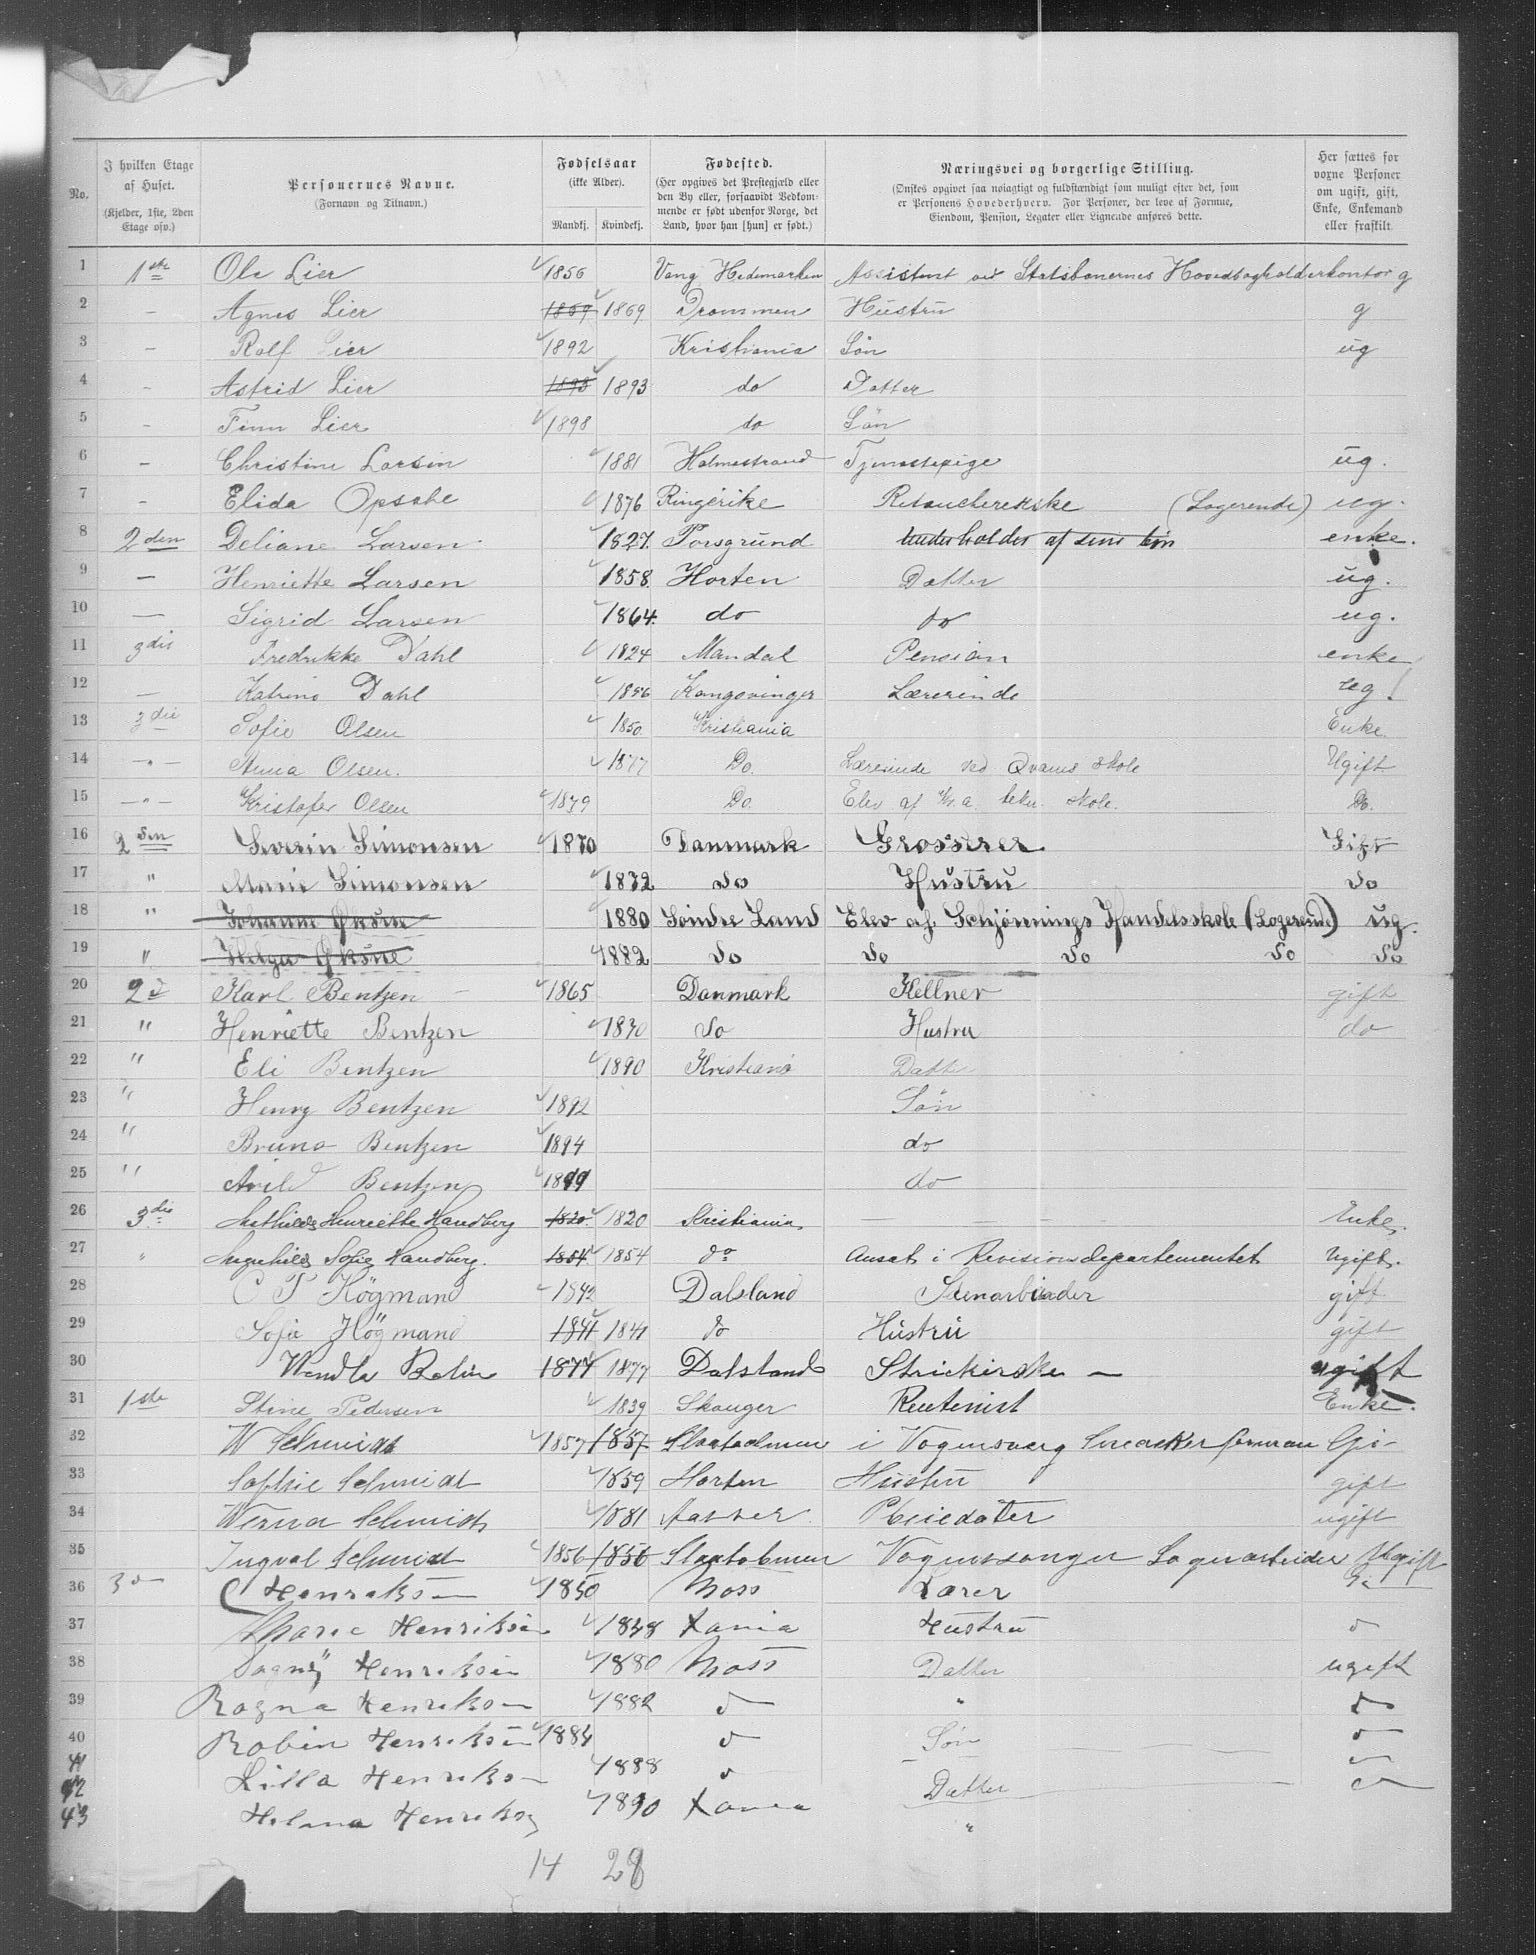 No. | I hvilken Etage af Huset. (Kjelder, 1ste, 2den Etage osv.) | Personernes Navne. (Fornavn og Tilnavn.) | Fødselsaar (ikke Alder). Mandkj. Kvindekj. | Fødested. (Her opgives det Prestegjæld eller den By eller, forsaavidt Vedkommende er født udenfor Norge, det Land, hvor han [hun] er født.) | Næringsvei og borgerlige Stilling. (Ønskes opgivet saa nøiagtigt og fuldstændigt som muligt efter det, som er Personens Hovederhverv. For Personer, der leve af Formue, Eiendom, Pension, Legater eller Lignende anføres dette. | Her sættes for voxne Personer om ugift, gift, Enke, Enkemand eller fraskilt.
1 1ste Ole Lier 1856 Vang Hedemarken Assistent ved Statsbanernes Hovedbogholderkontor g
2 – Agnes Lier 1869 1869 Drammen Hustru g
3 – Rolf Lier 1892 Kristiania Søn ug
4 – Astrid Lier 1893 1893 do Datter
5 – Finn Lier 1898 do Søn
6 – Christine Larsen 1881 Holmestrand Tjenestepige ug.
7 – Elida Opsahl 1876 Ringerike (Logerende) ug.
8 2den Deliane Larsen 1827. Porsgrund Underholdes af sine enke.
9 — Henriette Larsen 1858. Horten Datter ug.
10 — Sigrid Larsen 1864. do do ug.
11 3die Fredrikke Dahl 1824 Mandal Pension enke
12 — Katrine Dahl 1856 Kongsvinger Lærerinde ug
13 3die Sofie Olsen 1850. Kristiania Enke.
14 —„— Anna Olsen. 1877 Do. Lærerinde ved Qvams skole Ugift
15 —„— Kristofer Olsen 1879 Do. Elev af tekn. skole. Do.
16 2den Severin Simonsen 1870 Danmark Grosserer Gift
17 " Marie Simonsen 1872 do Hustru do
18 " Johanne Øksne 1880 Søndre Land Elev af Schjønnings Handelsskole (Logerende) ug.
19 " Helga Øksne 1882 do do do do do
20 2d Karl Bentzen 1865 Danmark Kellner gift
21 " Henriette Bentzen 1870 do Hustru do
22 " Eli Bentzen 1890 Kristiania Datter
23 " Henry Bentzen 1892 Søn
24 " Bruno Bentzen 1894 do
25 " Arild Bentzen 1899 do
26 3die Mathilde Henriette Sandberg 1820. 1820 Kristiania — — — Enke.
27 " Sofie Sandberg. 1854 1854 do Ansat i Revisionsdepartementet Ugift.
28 C P Högmand 1842 Dalsland Stenarbeider gift
29 Sofia Högmand 1841 1841 do Hustru gift
30 Vendla 1877 1877 Dalsland Strickerske — ugift
31 1ste Stine Pedersen 1839 Skauger Rentenist Enke.
32 W Schmidt 1857 1857 i
33 Sophie Schmidt 1859 Horten Hustru gift
34 Schmidt 1881 Pleiedatter ugift
35 Ingval Schmidt 1856 1856 Ugift
36 3 C Henriksen 1850 Moss Lærer
37 Marie Henriksen 1848 Xania Hustru
38 Dagny Henriksen 1880 Moss Datter ugift
39 Ragna Henriksen 1882 "
40 Robin Henriksen 1884 Søn
41
42 Lilla Henriksen 1888 Datter
43 Helena Henriksen 1890 Xania "
14 28